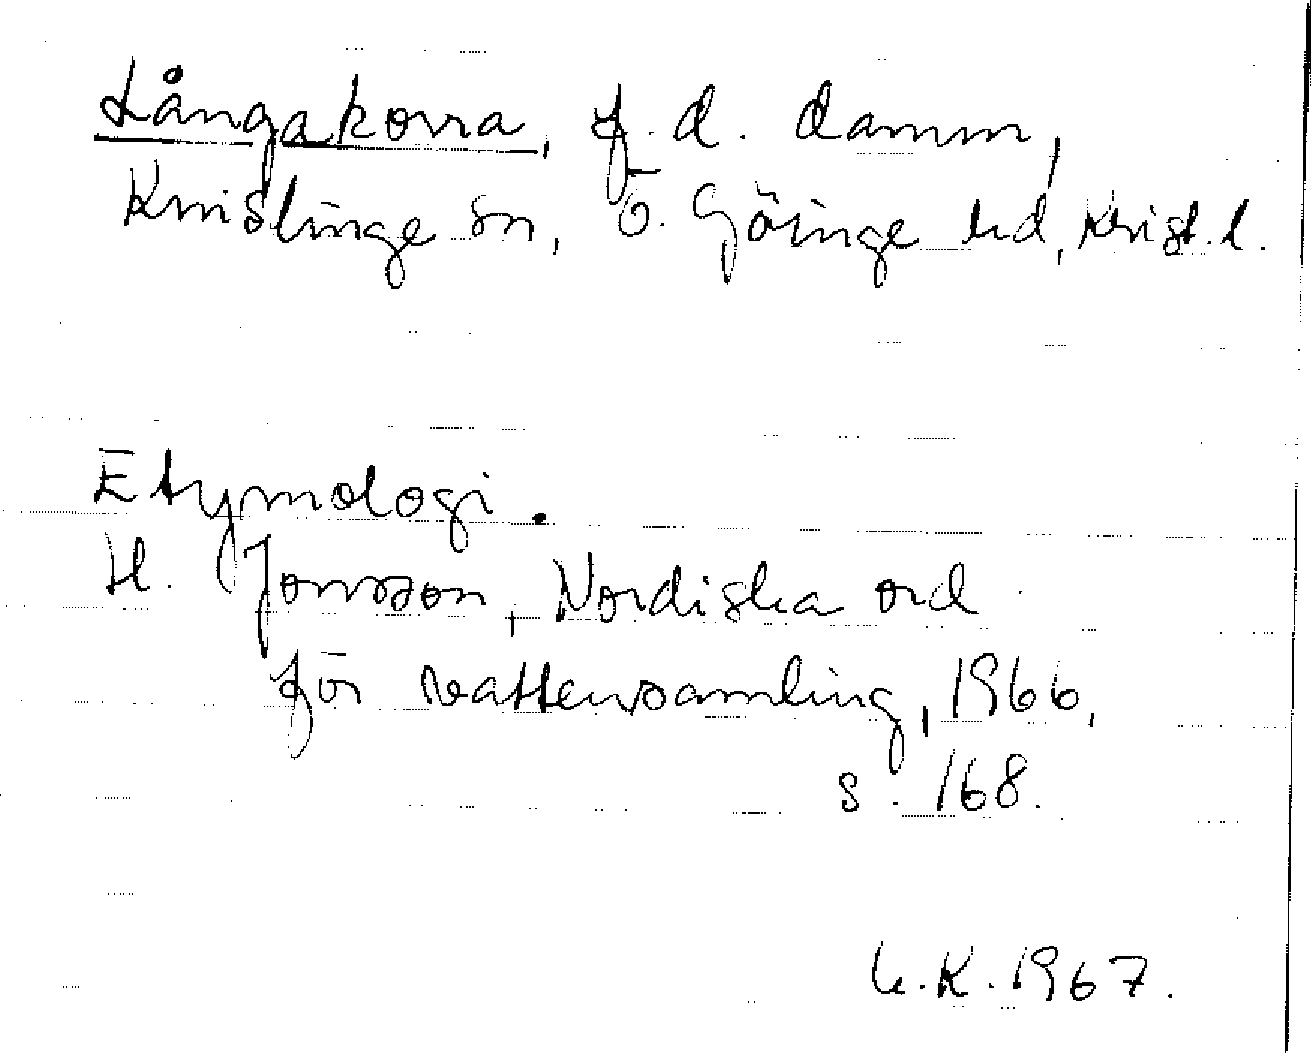 Långakorra, f.d. damm,
Knislinge sn, Ö. Göinge hd, Krist. l.
Etymologi.
H. Jonsson, Nordiska ord
för vattensamling, 1966,
s. 168.
K. 1967.